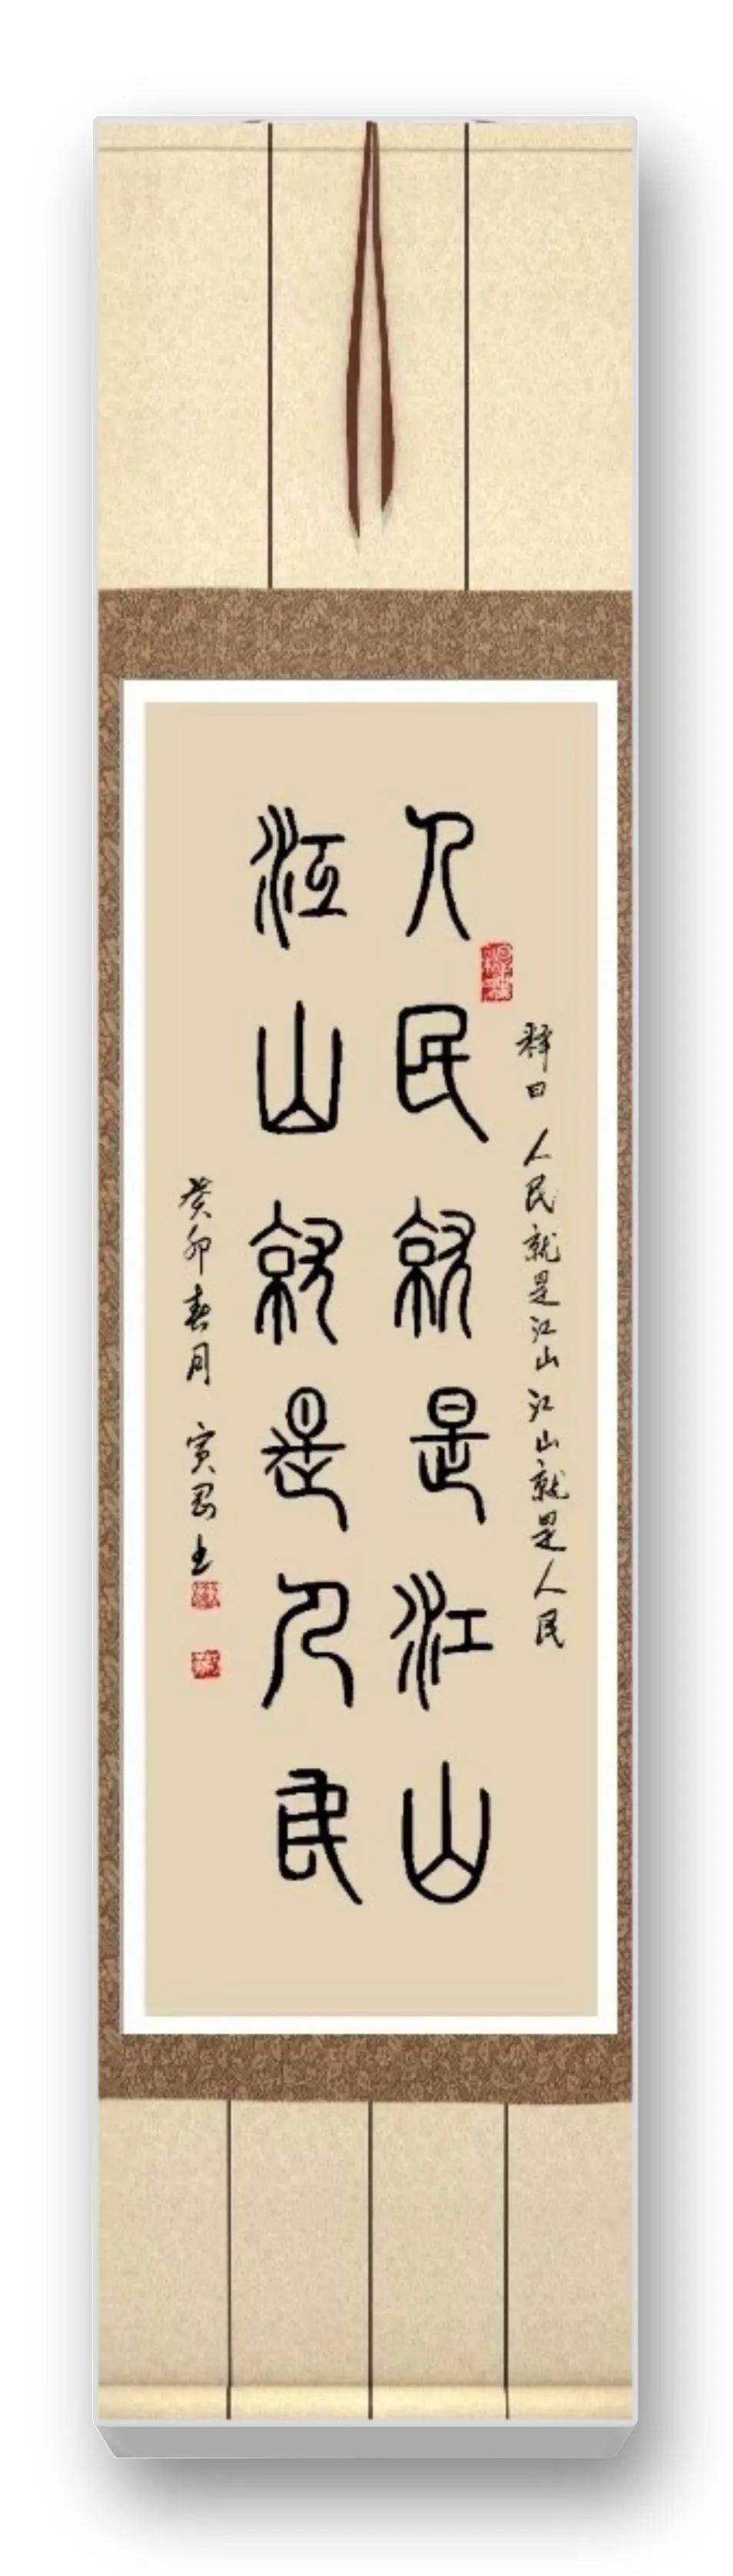 释曰 人民就是江山 江山就是人民
人民就是江山
江山就是人民
癸卯春月